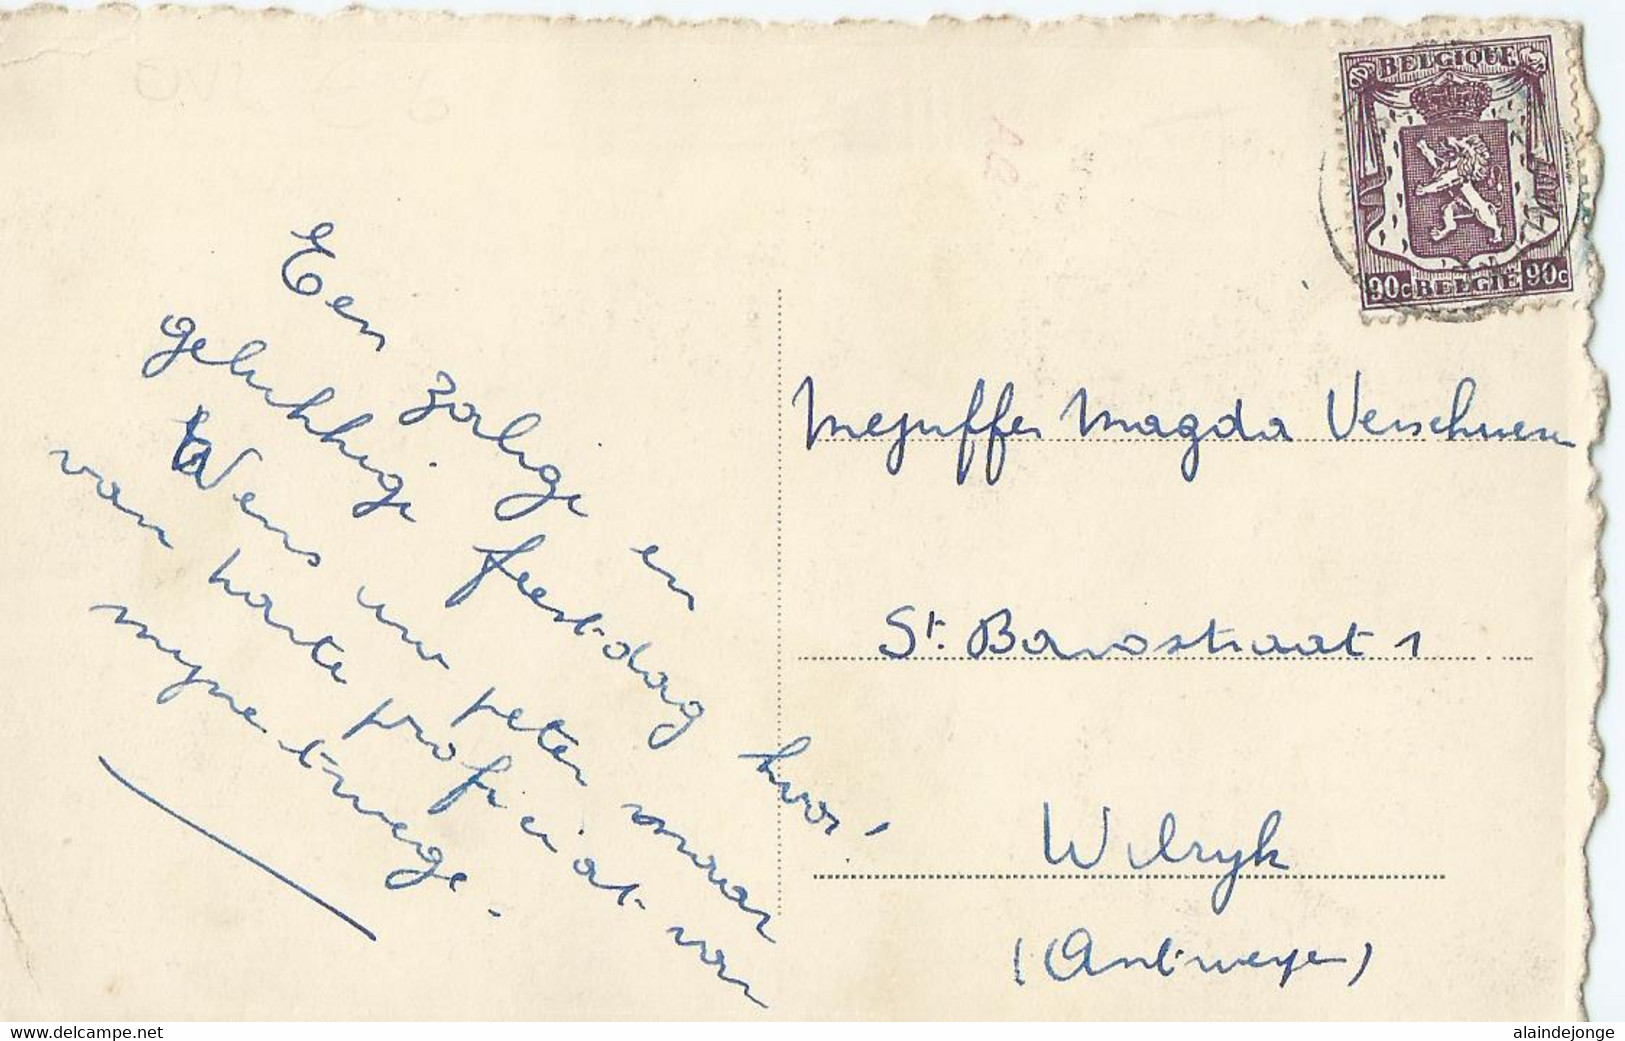 Een zalige en
gelukkige feestdag hoor!
Wens uw peter maar
van harte proficiat van
mynentwege.
BELGIQUE
90c BELGIE 90c
Mejuffer Magda Verschueren
St. Bavostraat 1
Wilryk
(Antwerpen)
www.delcampe.net
alaindejonge